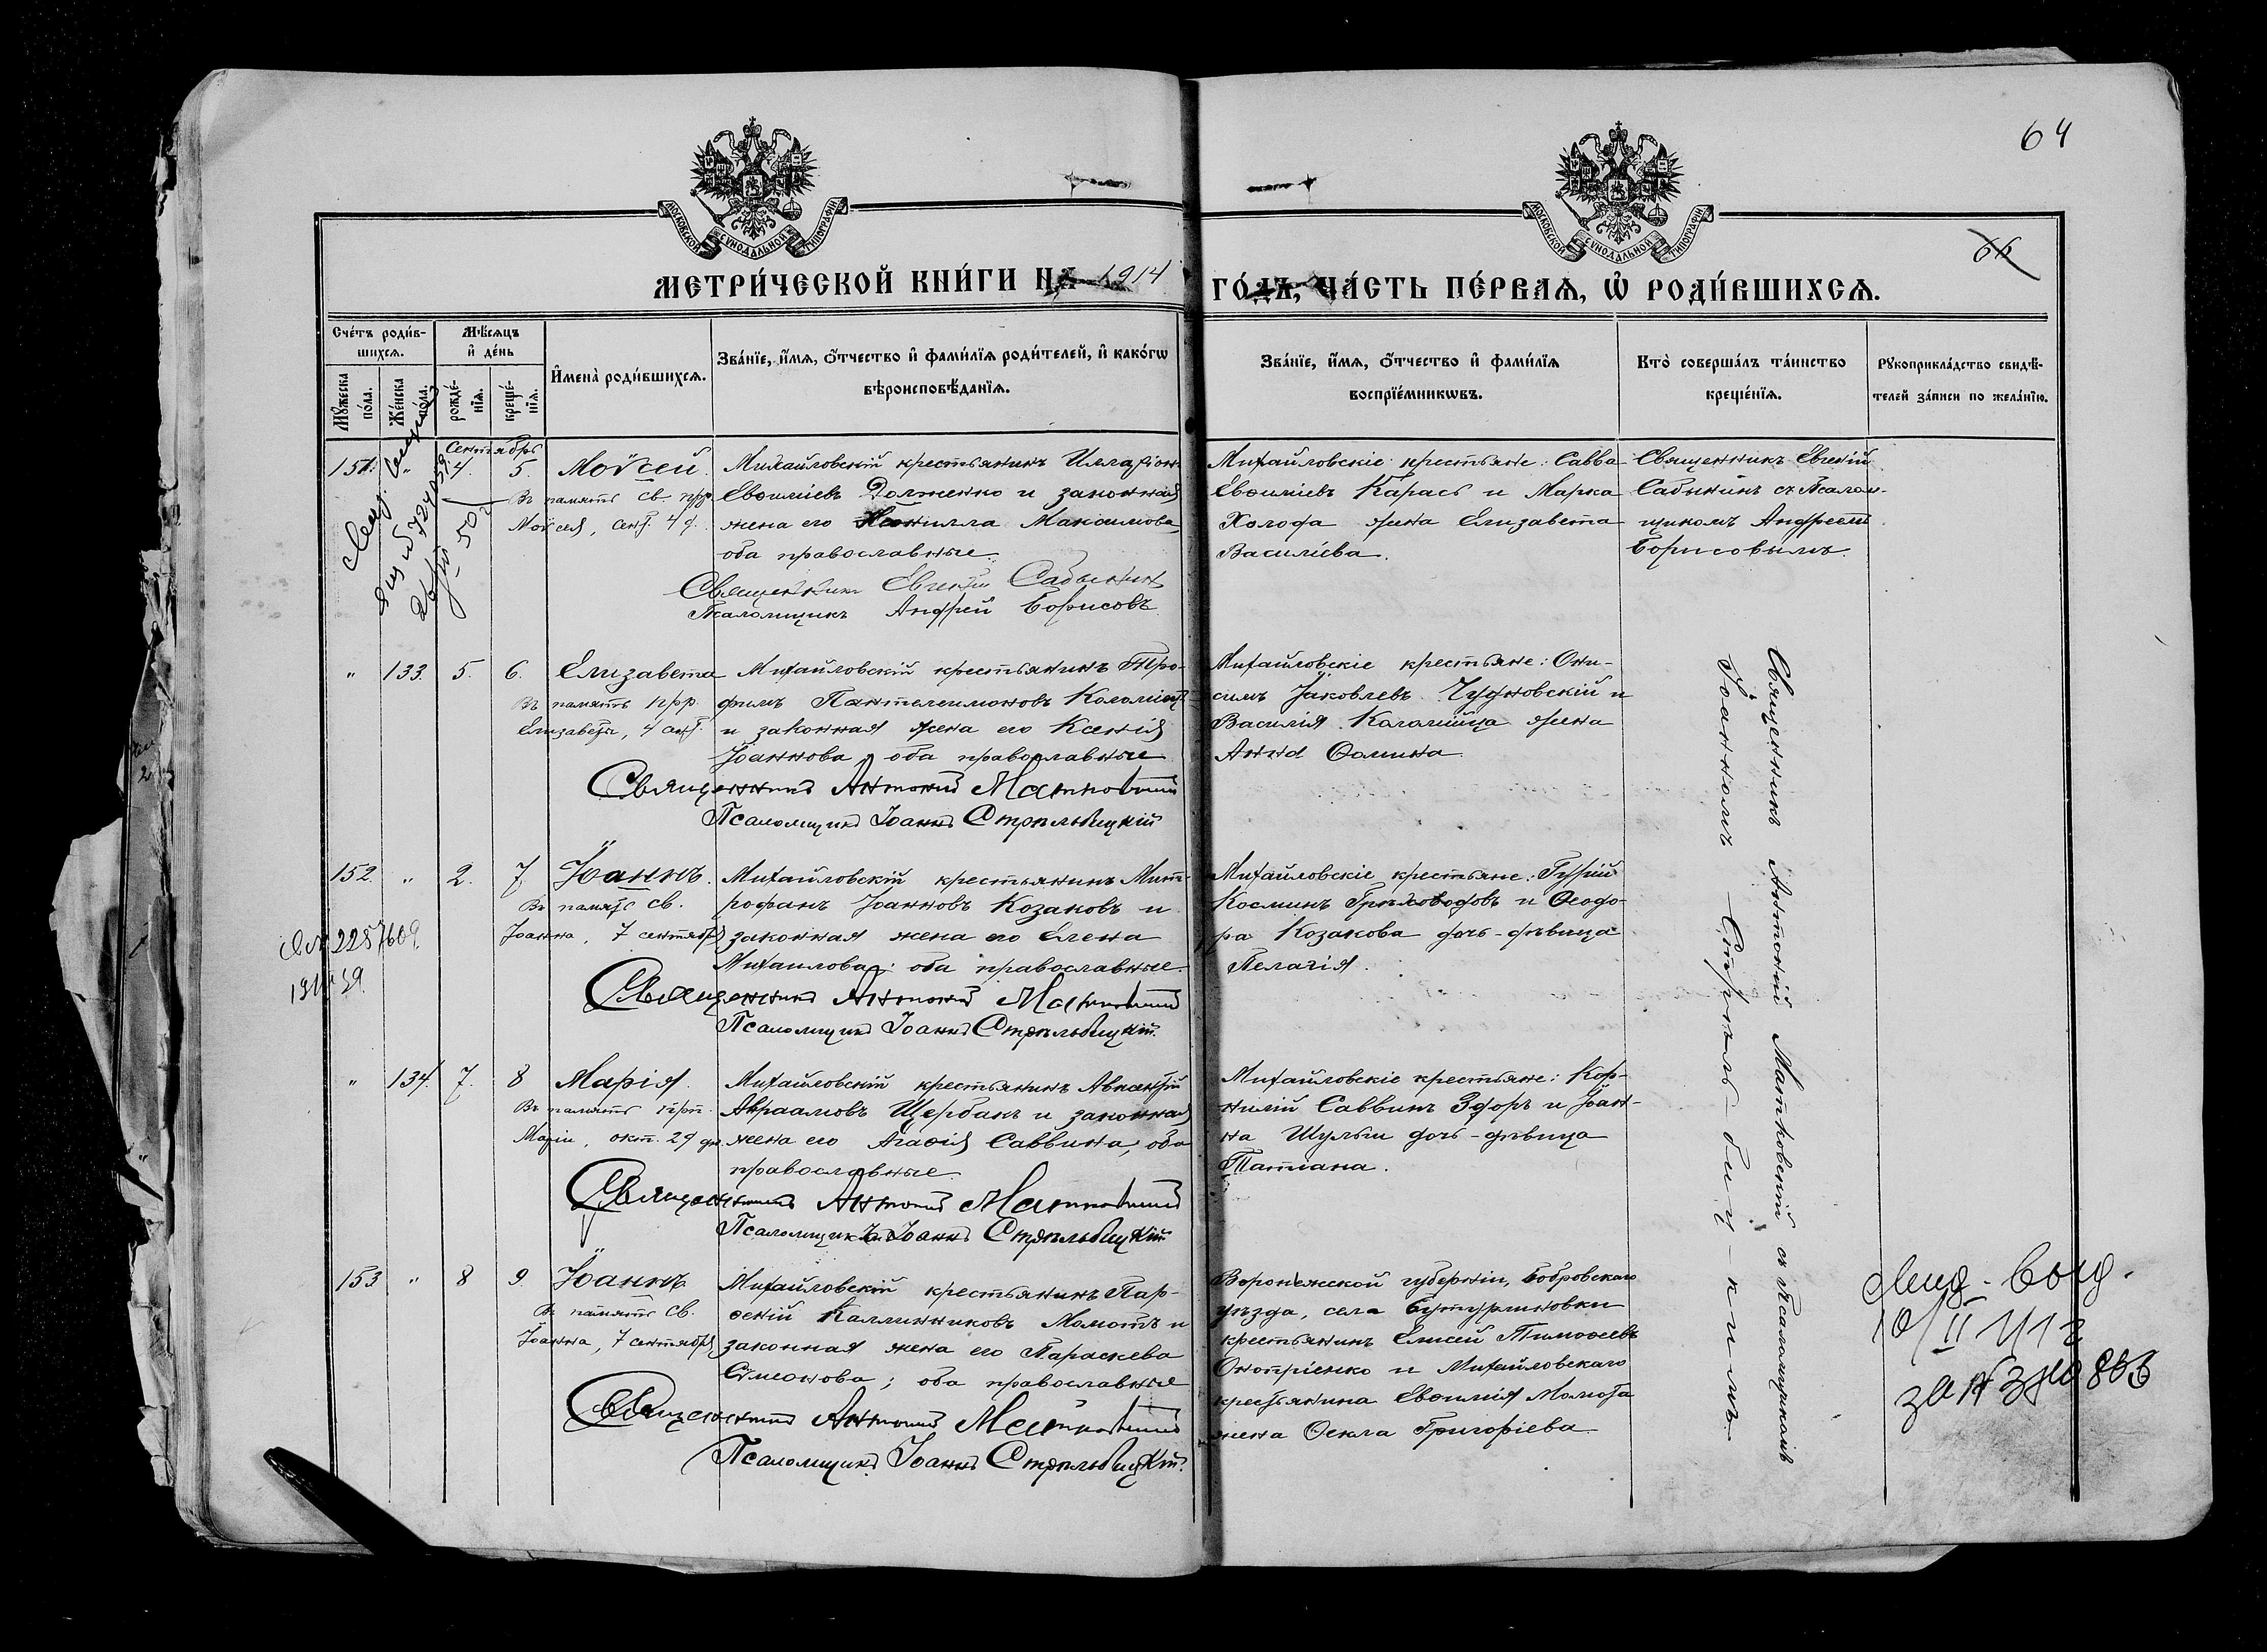 64
66
МОСКОВСКОЙ СУНОДАЛЬНОЙ ТИПОГРАФИИ
МОСКОВСКОЙ СУНОДАЛЬНОЙ ТИПОГРАФИИ
МЕТРИ́ЧЕСКОЙ КНИ́ГИ НА 1914 ГО́ДЪ, ЧА́СТЬ ПЕ́РВАѦ, Ѡ҆ РОДИ́ВШИХСѦ.
Сче́тъ роди́в-
шихсѧ.
Мѣ́сѧцъ
и҆ де́нь
Мꙋ́жеска
по́ла.
Же́нска
по́ла.
рожде́-
нїѧ.
креще́-
нїѧ.
И҆мена̀ роди́вшихсѧ.
Зва́нїе, и҆́мѧ, о҆́тчество и҆ фами́лїѧ роди́телей, и҆ како́гѡ
вѣроисповѣ́данїѧ.
Зва́нїе, и҆́мѧ, о҆́тчество и҆ фами́лїѧ
воспрїе́мникѡвъ.
Кто̀ соверша́лъ та́инство
креще́нїѧ.
Рꙋкоприкла́дство свидѣ́-
телей за́писи по жела́нїю.
Сентябрь
151. " 4. 5. Моѵсей.
Въ память св. прр.
Моѵсея, сент. 4 д.
Михайловскій крестьянинъ Илларіонъ
Евѳиміевъ Долженко и законная
жена его Неонилла Максимова,
оба православные.
Священникъ Евгеній Садынин
Псаломщикъ Андрей Борисовъ
Михайловскіе крестьяне: Савва
Евѳиміевъ Карась и Марка
Холода жена Елизавета
Василіева.
Священникъ Евгеній
Садынинъ съ Псалом-
щикомъ Андреемъ
Борисовымъ.
" 133. 5. 6. Елизавета
Въ память прр.
Елизаветы,
Михайловскій крестьянинъ Тро-
фимъ Пантелеимоновъ Коломіецъ
и законная жена его Ксенія
Іоаннова, оба православные
Священникъ Антоній Матковскій
Псаломщикъ Іоаннъ Стрѣльбицкій
Михайловскіе крестьяне: Они-
симъ Іаковлевъ Чудновскій и
Василія Коломійца жена
Анна Ѳомина.
152. " 2. 7. Іоаннъ.
Въ память св.
Іоанна, 7 сентября
Михайловскій крестьянинъ Мит-
рофанъ Іоанновъ Козаковъ и
законная жена его Елена
Михаилова; оба православные.
Священникъ Антоній Матковскій
Псаломщикъ Іоаннъ Стрѣльбицкій.
Михайловскіе крестьяне: Гурій
Косминъ Грѣховодовъ и Ѳеодо-
ра Козакова дочь-дѣвица
Пелагія.
" 134. 7. 8 Марія.
Въ память прп.
Маріи, окт. 29 дн.
Михайловскій крестьянинъ Авксентій
Авраамовъ Щербакъ и законная
жена его Агаѳія Саввина, оба
православные.
Священникъ Антоній Матковскій
Псаломщикъ Іоаннъ Стрѣльбицкій
Михайловскіе крестьяне: Кор-
нилій Саввинъ Здоръ и Іоан-
на Шульги дочь-дѣвица
Татіана.
153 " 8 9 Іоаннъ
Въ память св.
Іоанна, 7 сентября
Михайловскій крестьянинъ Пар-
ѳеній Каллинниковъ Мамотъ и
законная жена его Параскева
Симеонова; оба православные
Священникъ Антоній Матковскій
Псаломщикъ Іоаннъ Стрѣльбицкій.
Воронежской губерніи, Бобровскаго
уѣзда, села Бутурлиновки
крестьянинъ Елисей Тимоѳеевъ
Онопріенко и Михайловскаго
крестьянина Евѳимія Мамота
жена Ѳекла Григоріева
Священникъ Антоній Матковскій съ Псаломщикомъ
Іоанномъ Стрѣльбиц-кимъ.